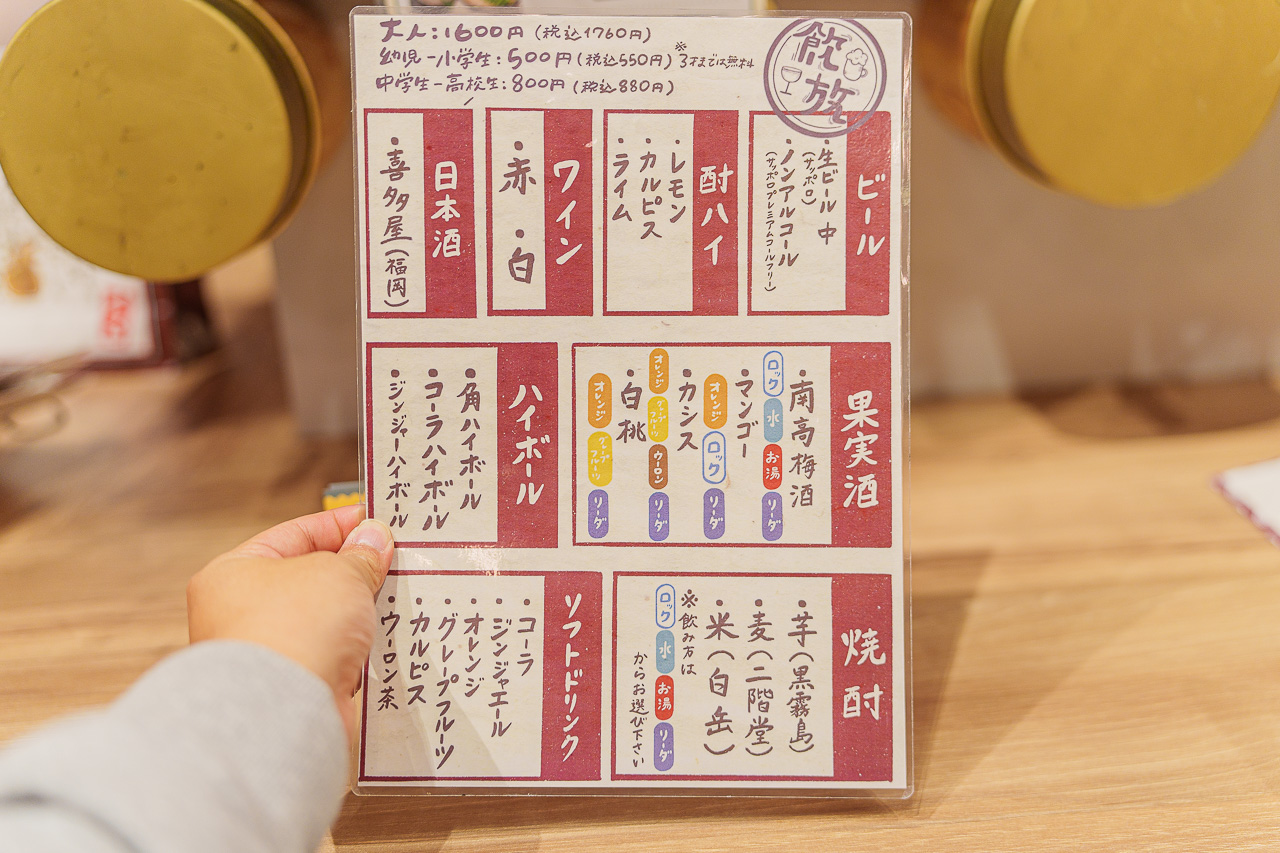 大人:1600円(税込1760円)
幼児-小学生:500円(税込550円)※3才までは無料
中学生-高校生:800円(税込880円)
飲放
ビール
・生ビール中
(サッポロ)
・ノンアルコール
(サッポロプレミアムアルコールフリー)
酎ハイ
・レモン
・カルピス
・ライム
ワイン
・赤・白
日本酒
・喜多屋(福岡)
果実酒
・南高梅酒
ロック 水 お湯 ソーダ
・マンゴー
オレンジ ロック ソーダ
・カシス
オレンジ グレープフルーツ ウーロン ソーダ
・白桃
オレンジ グレープフルーツ ソーダ
ハイボール
・角ハイボール
・コーラハイボール
・ジンジャーハイボール
焼酎
・芋(黒霧島)
・麦(二階堂)
・米(白岳)
※飲み方は
ロック 水 お湯 ソーダ
からお選び下さい
ソフトドリンク
・コーラ
・ジンジャエール
・オレンジ
・グレープフルーツ
・カルピス
・ウーロン茶